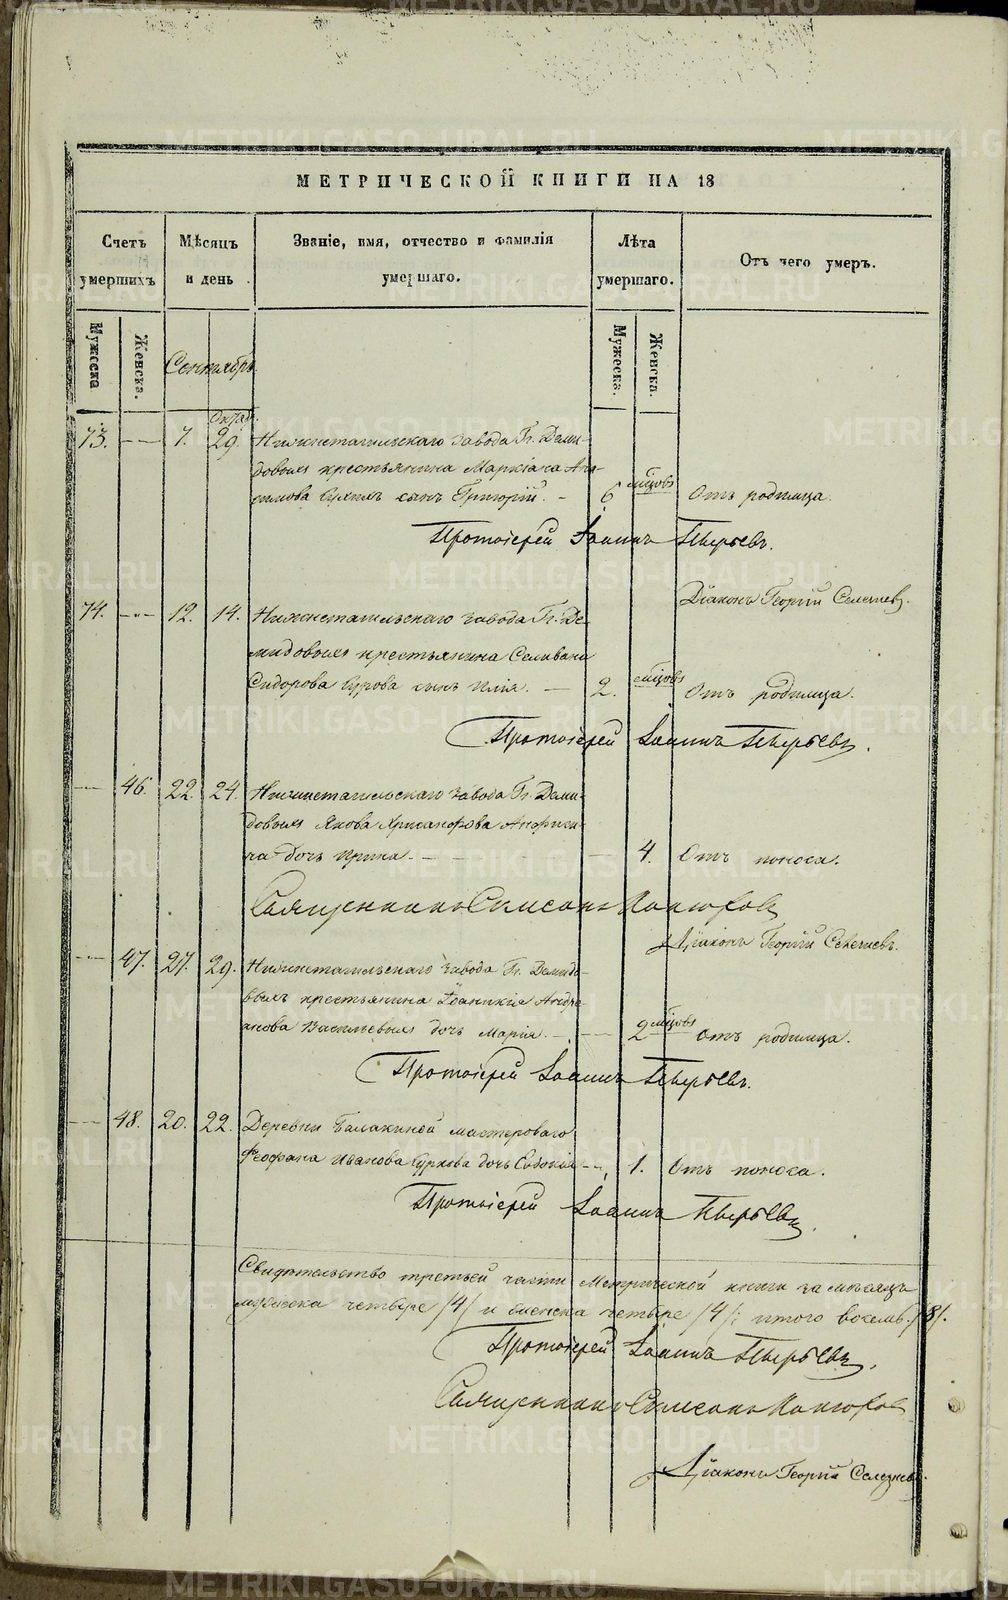 МЕТРИЧЕСКОЙ КНИГИ НА 18
Счетъ умершихъ
Мѣсяцъ и день
Званіе, имя, отчество и фамилія умершаго.
Лѣта умершаго.
Отъ чего умеръ.
Мужеска
Женска.
Мужеска.
Женска.
Сентябрь.
73. 7. 29. Нижнетагильскаго завода Гг. Деми-
довыхъ крестьянина Маркіана
сынъ Григорій. 6 мѣсцовъ Отъ родимца.
Протоіерей Іоаннъ Пырьевъ.
Діаконъ Георгій Селезневъ.
74. 12. 14. Нижнетагильскаго завода Гг. Де-
мидовыхъ крестьянина Селивана
Сидорова сынъ Илія. 2. мѣсцовъ Отъ родимца.
Протоіерей Іоаннъ Пырьевъ.
46. 22. 24. Нижнетагильскаго завода Гг. Деми-
довыхъ Якова Хрисанфова
дочь Ирина. 4. Отъ поноса.
Священникъ Симеонъ
Діаконъ Георгій Селезневъ.
47. 27. 29. Нижнетагильскаго завода Гг. Демидо-
выхъ крестьянина Іоанникія Андре-
анова Васильевыхъ дочь Марія. 2 мѣсцовъ Отъ родимца.
Протоіерей Іоаннъ Пырьевъ.
48. 20. 22. Деревни Балакиной мастероваго
Феофана Иванова дочь 1. Отъ поноса.
Протоіерей Іоаннъ Пырьевъ.
Свидѣтельство третьей части Метрической книги за мѣсяцъ
мужеска четыре /4/ и женска четыре /4/: итого восемь. /8/.
Протоіерей Іоаннъ Пырьевъ.
Священникъ Симеонъ
Діаконъ Георгій Селезневъ.
METRIKI.GASO-URAL.RU